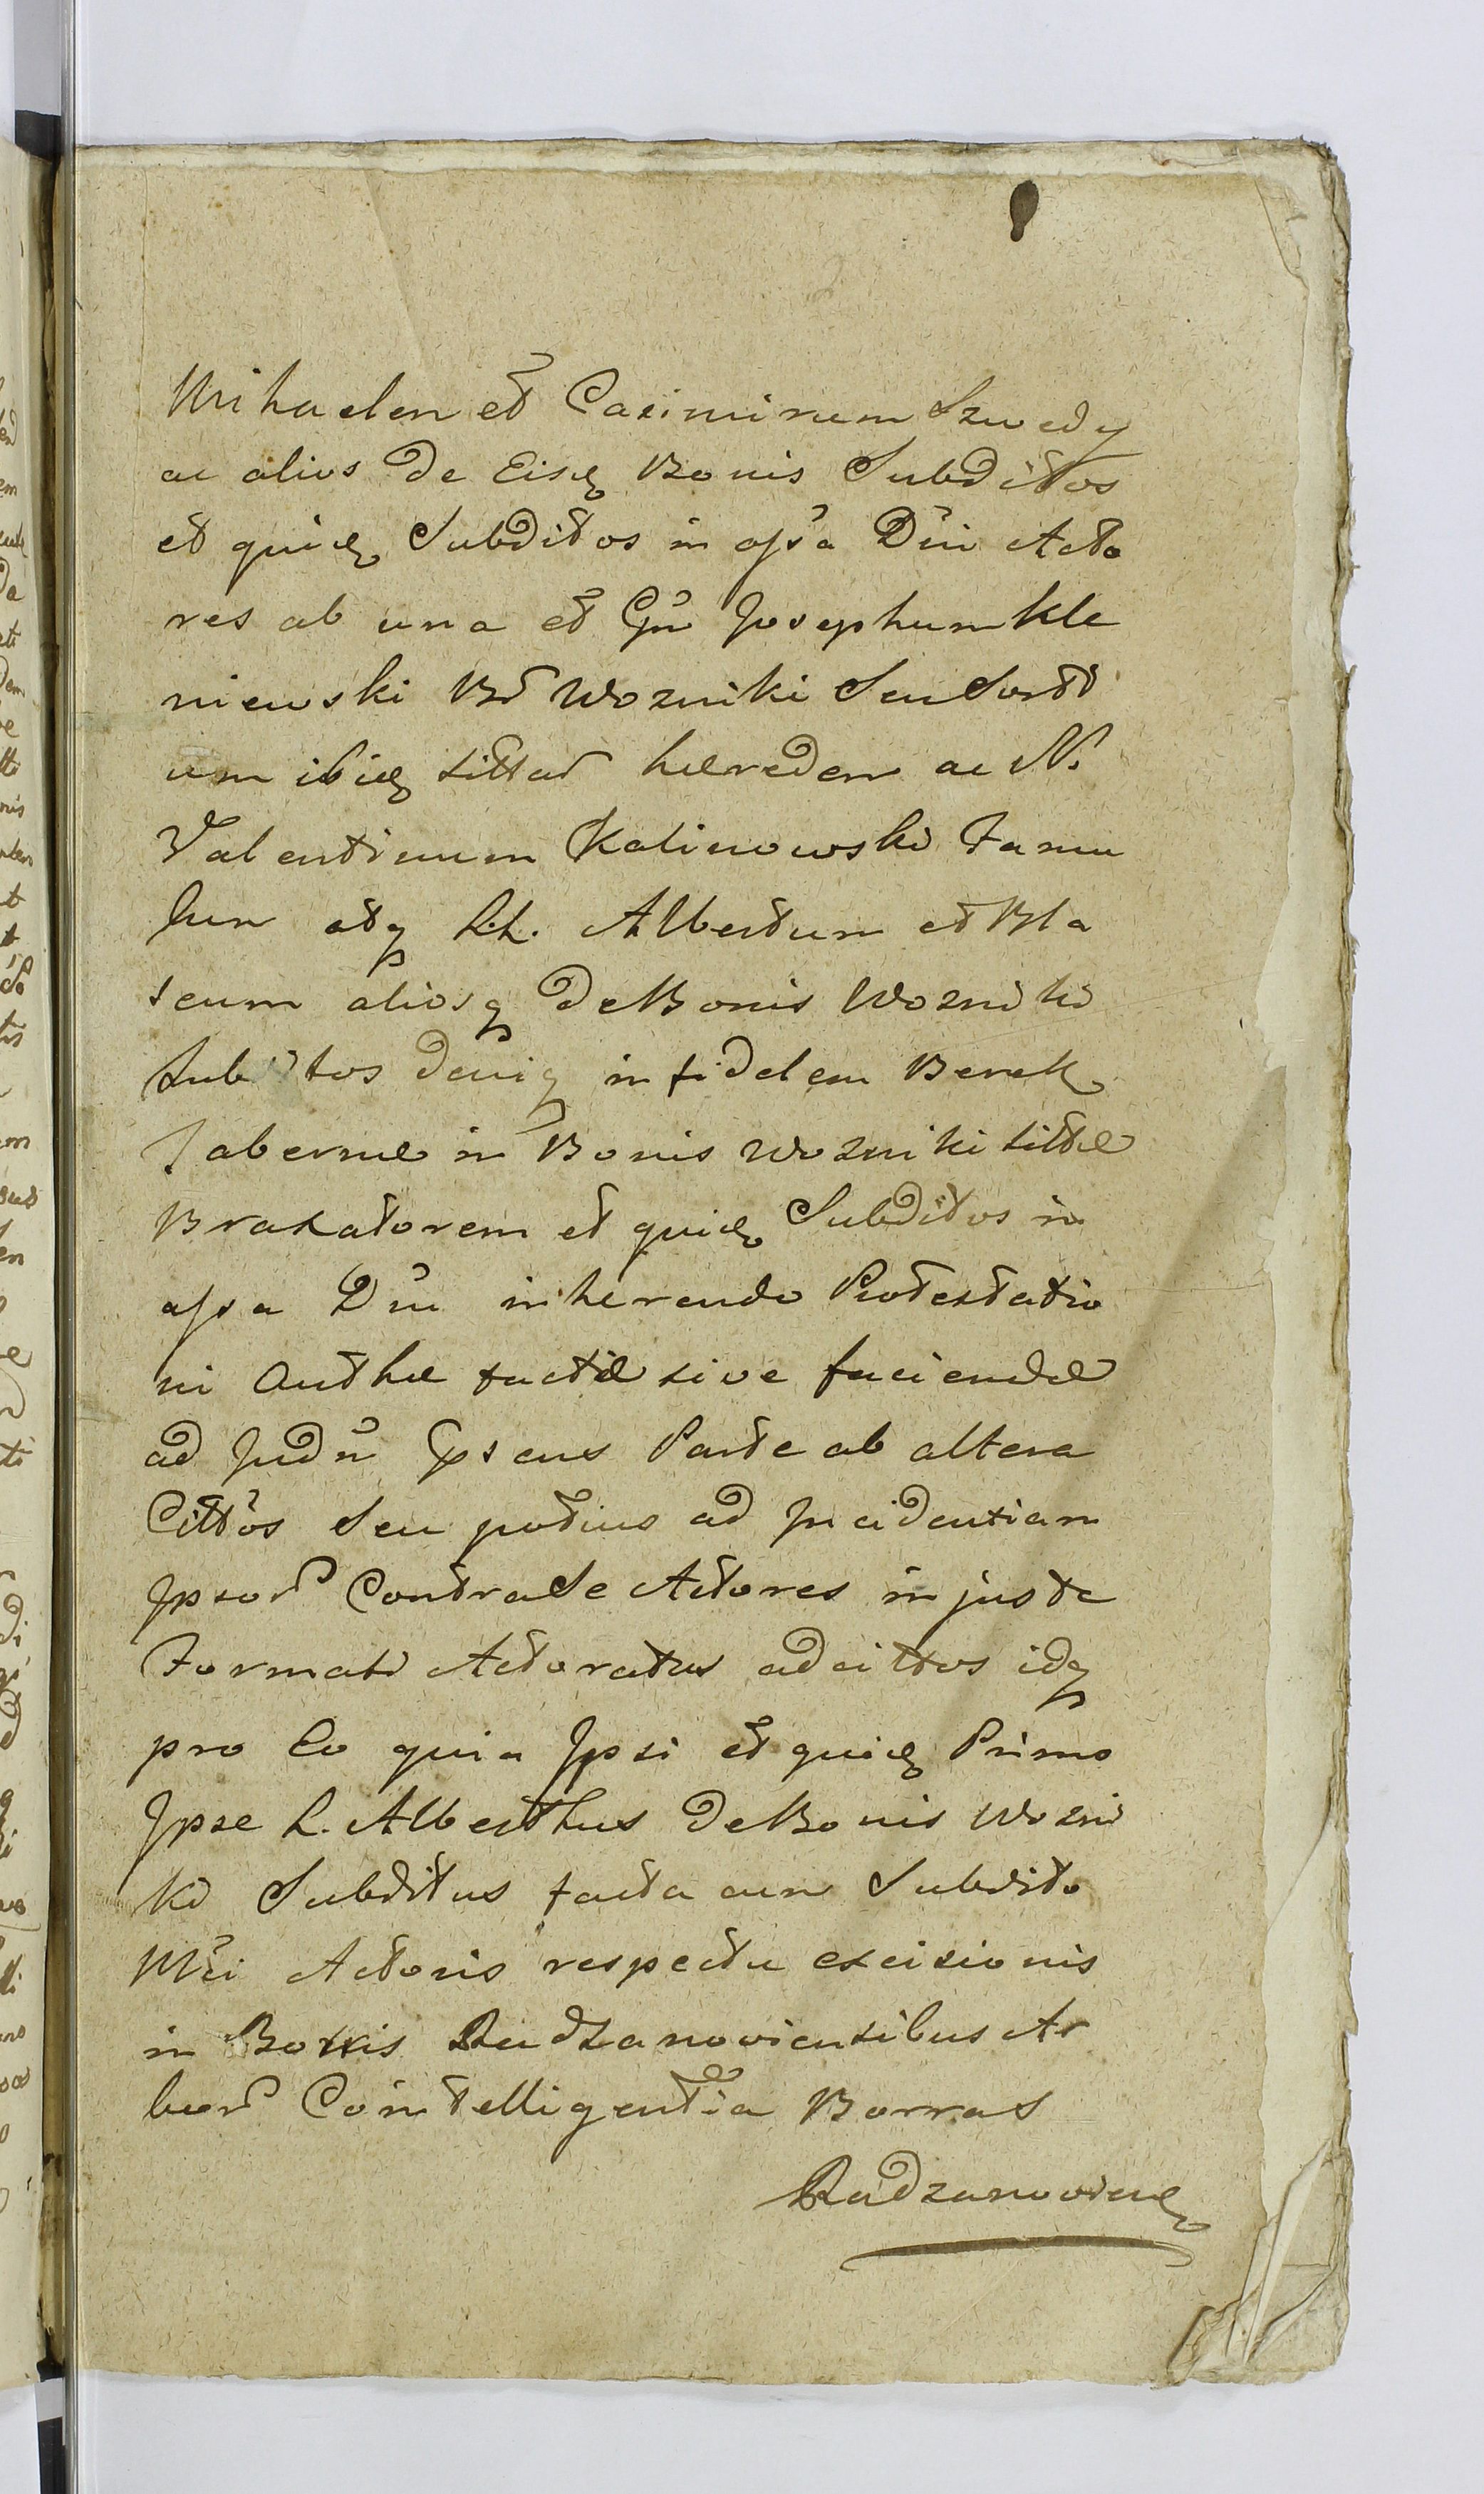 Michaelem et Casimirum Szwedy
ac alios de Eisq Bonis Subditos
et quidq Subditos in assa Dni Acto
res ab una et Gn Josephum Kle
niewski Bd Wozniki Seu Sortt
um ibiq sittar hæredem ac N.
Valentinum Kalinowski Famu
lum atq LL. Albertum et Bla
seum aliosq de Bonis Wozniki
Subditos deniq infidelem Berek
Tabernæ in Bonis Wozniki sittæ
Braxatorem et quidq Subditos in
assa Dni inherendo Protestatio
ni Authæ factæ sive faciendæ
ad Judm psens Parte ab altera
Cittos Seu potius ad Incidentiam
Ipsor Contra Se Actores injuste
Formati Actoratus adcittos idq
pro Eo quia Ipsi et quidq Primo
Ipse L. Alberthus de Bonis Wozni
ki Subditus facta cum Subdito
Mci Actoris respectu excisionis
in Bonis Radzanoviensibus Ar
bor Cointelligentia Borras
Radzanoviens